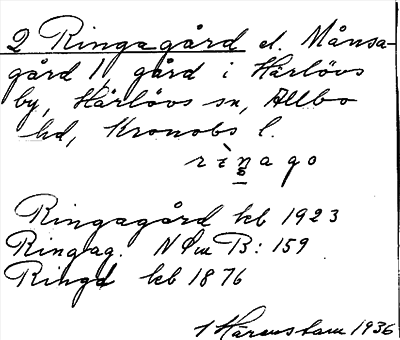 2 Ringagård el. Månsa-
gård 1, gård i Härlövs
by, Härlövs sn, Allbo
hd, Kronobs l.
rinago
Ringagård kb 1923
Ringag. NSm B: 159
Ringd kb 1876
Härenstam 1936